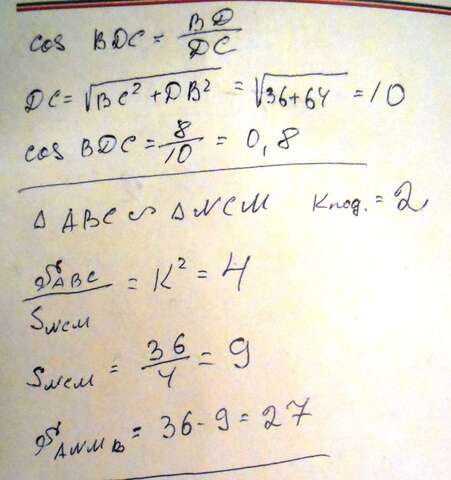 cos BDC = BD/DC
DC = √BC² + DB² = √36+64 = 10
cos BDC = 8/10 = 0,8
△ ABC ∽ △ NCM Kпод. = 2
S ABC / S NCM = K² = 4
S NCM = 36/4 = 9
S ANMB = 36 - 9 = 27